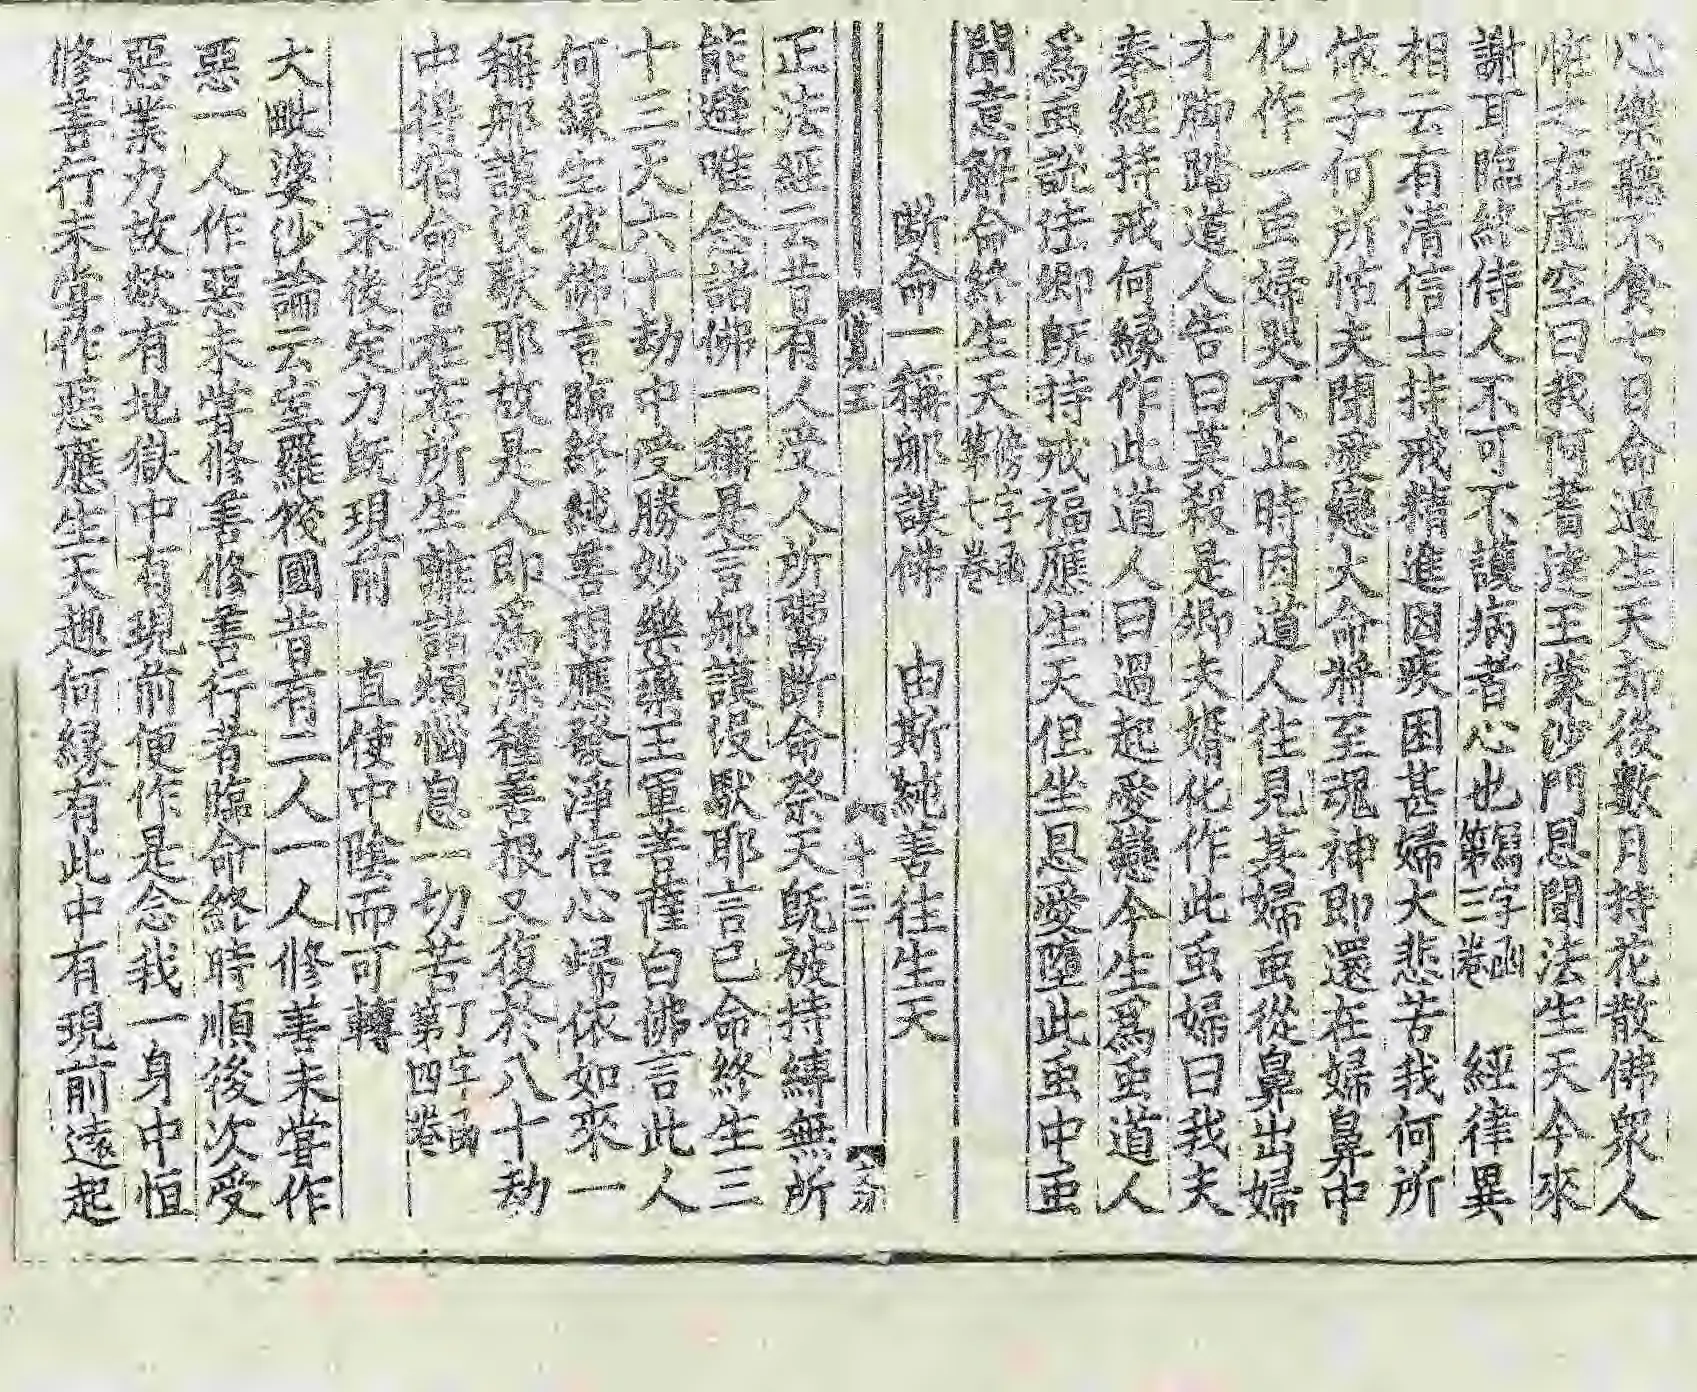 心樂聽不食七日命過生天却後數月持花散佛眾人
怪之在虛空曰我何者達王蒙沙門恩聞法生天今來
謝耳臨終侍人不可不護病者心也寫字函第三卷　經律異
相云有清信士持戒精進因疾困甚婦大悲苦我何所
依子何所怙夫聞愛戀大命將至魂神即還在婦鼻中
化作一䖝婦哭不止時因道人往見其婦䖝從鼻出婦
才脚踏道人告曰莫殺是婦夫婿化作此䖝婦曰我夫
奉經持戒何緣作此道人曰過起愛戀今生爲䖝道人
爲䖝說法卿旣持戒福應生天但坐恩愛墮此䖝中䖝
聞意解命終生天傍字函第七卷
斷命一稱䣑謨佛　由斯純善往生天
覽五　十三
正法經云昔有人受人所雇斷命祭天旣被持縛無所
能避唯念諸佛一稱是言䣑謨沒馱耶言已命終生三
十三天六十劫中受勝妙樂藥王軍菩薩白佛言此人
何緣生彼佛言臨終純善相應發淨信心歸依如來一
稱䣑謨沒馱耶故是人即爲深種善根又復於八十劫
中得宿命智在在所生離諸煩惱息一切苦丁字函第四卷
末後定力旣現前　直使中陰而可轉
大毗婆沙論云室羅筏國昔有二人一人修善未甞作
惡一人作惡未甞修善修善行者臨命終時順後次受
惡業力故欻有地獄中有現前便作是念我一身中恒
修善行未甞作惡應生天趣何緣有此中有現前遠起